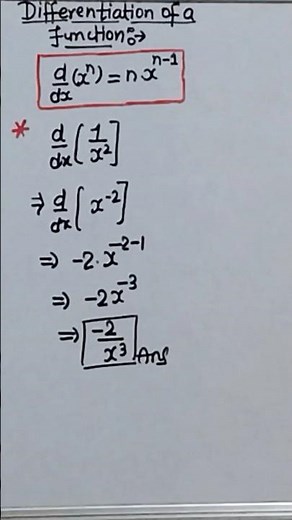 Differentiation of a
function:→
d/dx (xⁿ) = n·xⁿ⁻¹
* d/dx [1/x²]
⇒ d/dx [x⁻²]
⇒ -2·x⁻²⁻¹
⇒ -2x⁻³
⇒ -2/x³ Ans